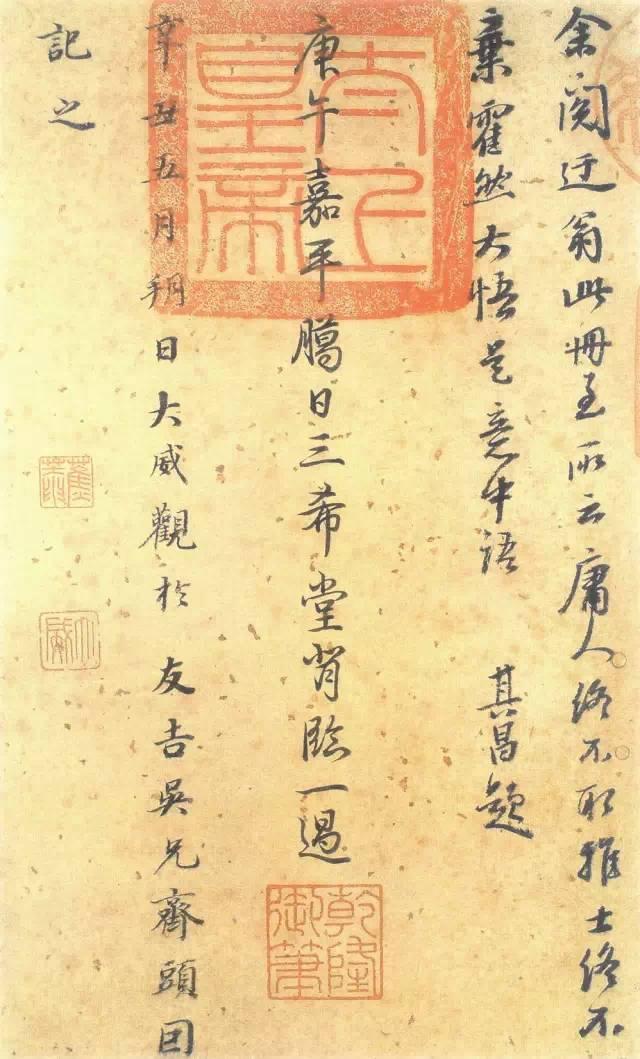 余閱迂翁此冊至所云庸人終不取雅士終不
棄霍然大悟是意中語 其昌題
太上皇帝
庚午嘉平臈日三希堂背臨一過
乾隆御筆
辛丑五月朔日大威觀於友吉吳兄齊頭因
記之
大威